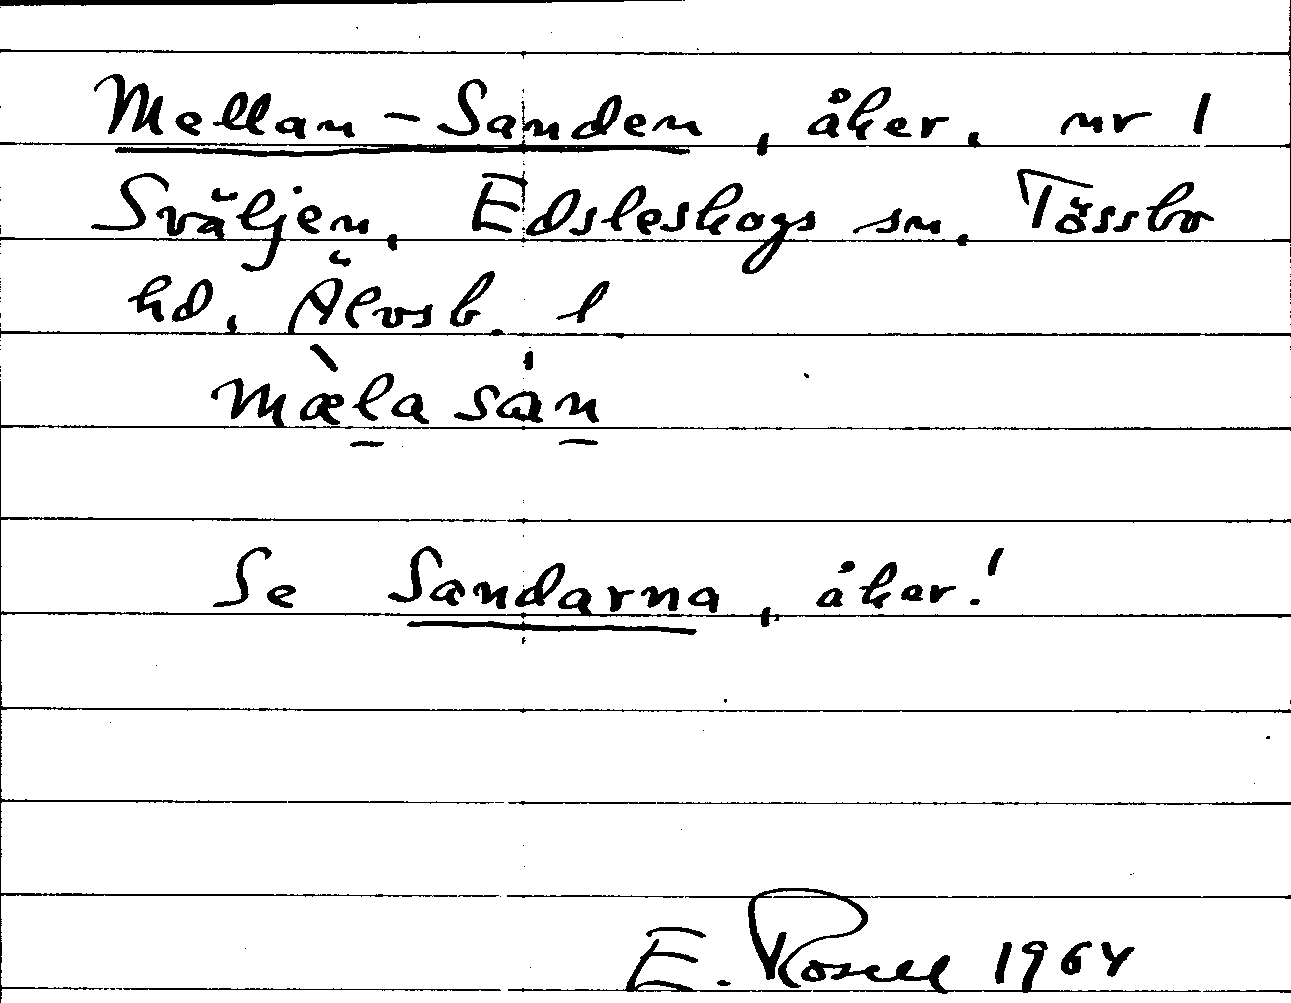 Mellan-Sanden, åker, nr 1
Sväljen, Edsleskogs sn, Tössbo
hd, Älvsb. l
mæ̀l̠a sa̍n̠
Se Sandarna, åker!
E. Rosell 1964